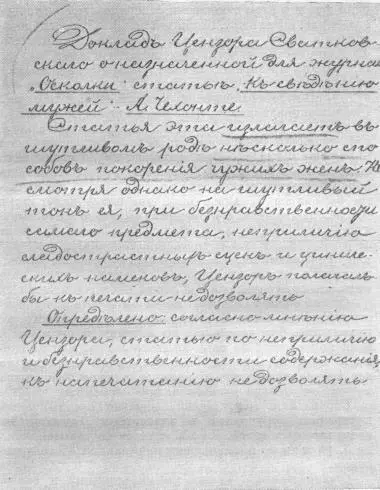 Докладъ Цензора Сватков-
скаго о назначенной для журнала
„Осколки“ статьѣ, Къ свѣдѣнію
мужей – А. Чехонте.
Статья эта излагаетъ въ
шутливомъ родѣ нѣсколько спо
собовъ покоренія чужихъ женъ. Не
смотря однако на шутливый
тонъ ея, при безнравственности
самаго предмета, неприличіи
сладострастныхъ сценъ и циниче-
скихъ намековъ, Цензоръ полагалъ
бы къ печати не дозволять
Опредѣлено: согласно мнѣнію
Цензора, статью по неприличію
и безнравственности содержанія,
къ напечатанію не дозволять